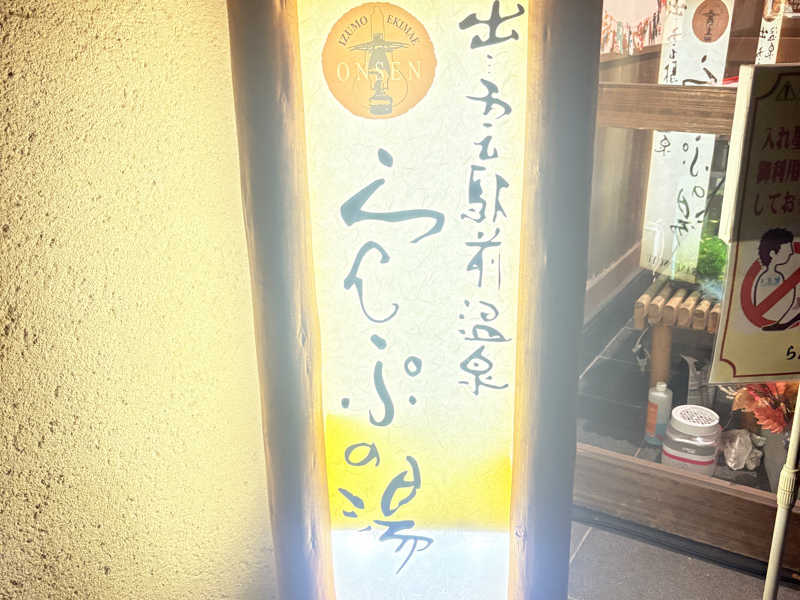 IZUMO EKIMAE
ONSEN
出雲駅前温泉
らんぷの湯
入れ墨
御利用
してお